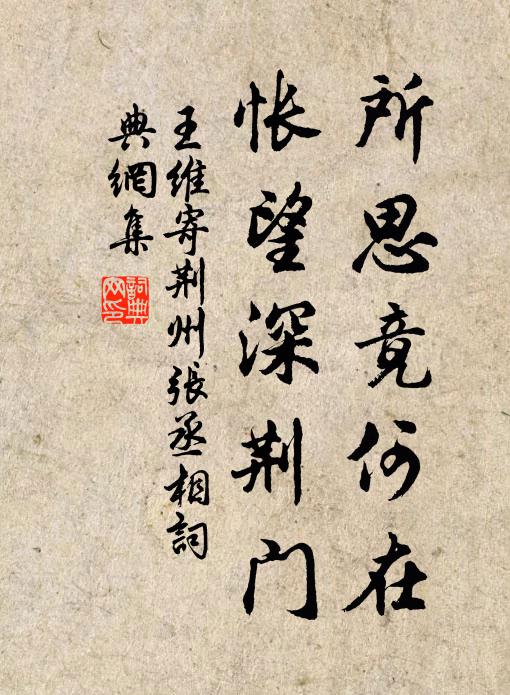 所思竟何在
怅望深荆门
王維寄荆州張丞相詞
典網集
詞典
网印